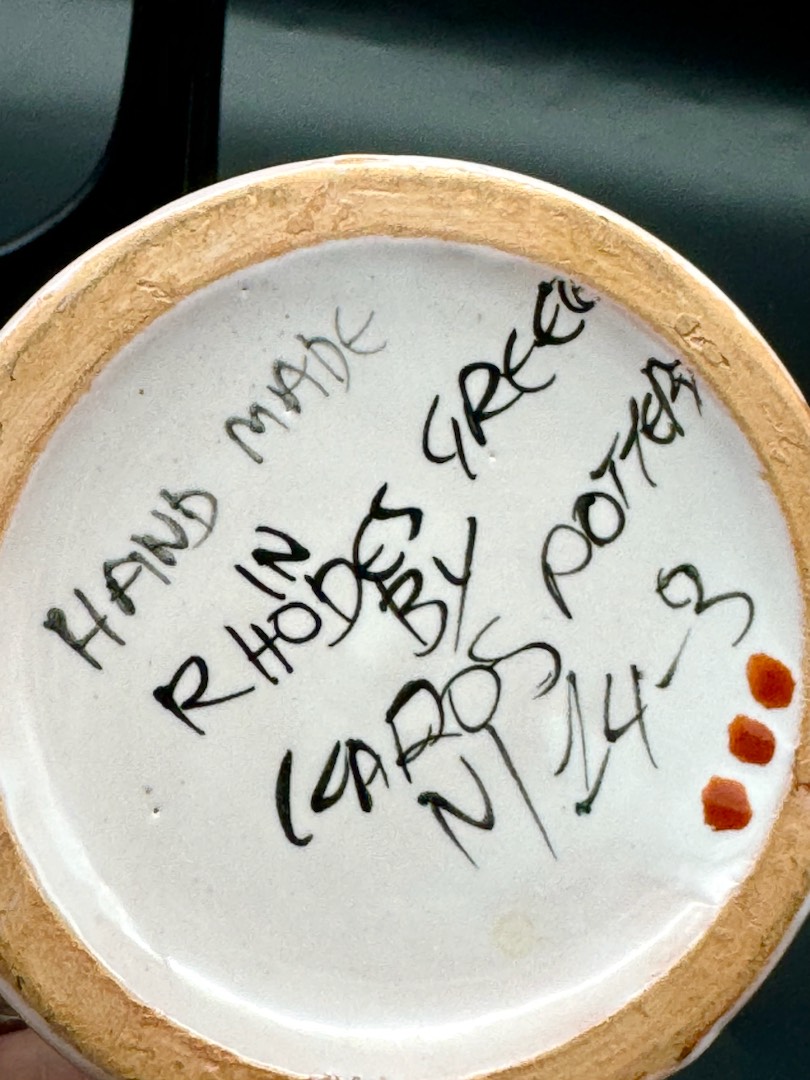 HAND MADE
IN
RHODES GREECE
BY
ICAROS POTTERY
N 14-3